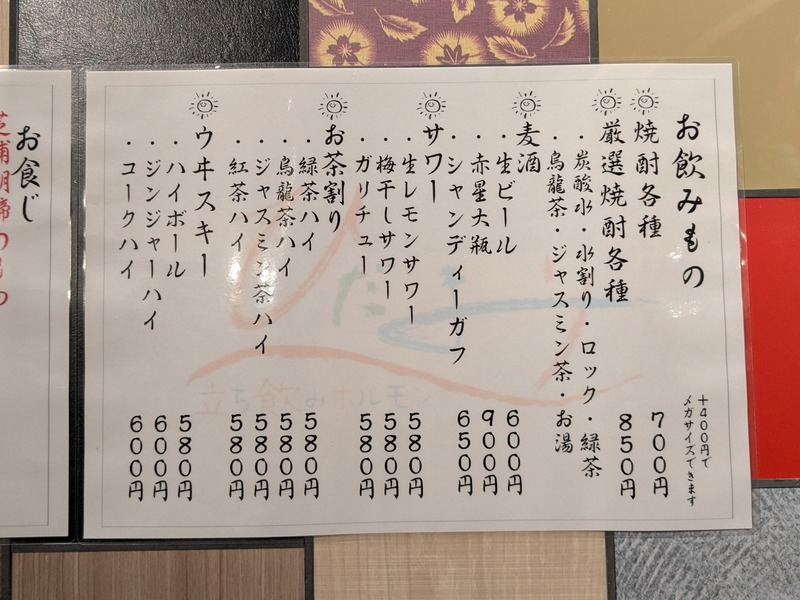 お飲みもの
＋４００円で
メガサイズできます
焼酎各種 ７００円
厳選焼酎各種 ８５０円
・炭酸水・水割り・ロック・緑茶
・烏龍茶・ジャスミン茶・お湯
麦酒
・生ビール ６００円
・赤星大瓶 ９００円
・シャンディーガフ ６５０円
サワー
・生レモンサワー ５８０円
・梅干しサワー ５８０円
・ガリチュー ５８０円
お茶割り
・緑茶ハイ ５８０円
・烏龍茶ハイ ５８０円
・ジャスミン茶ハイ ５８０円
・紅茶ハイ ５８０円
ウヰスキー
・ハイボール ５８０円
・ジンジャーハイ ６００円
・コークハイ ６００円
立ち飲みホルモン
お食じ